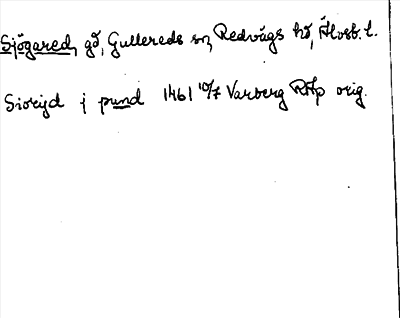 Sjögared, gd, Gullereds sn, Redvägs hd, Älvsb. l.
Siorijd j pund 1461 10/7 Varberg RAp orig.